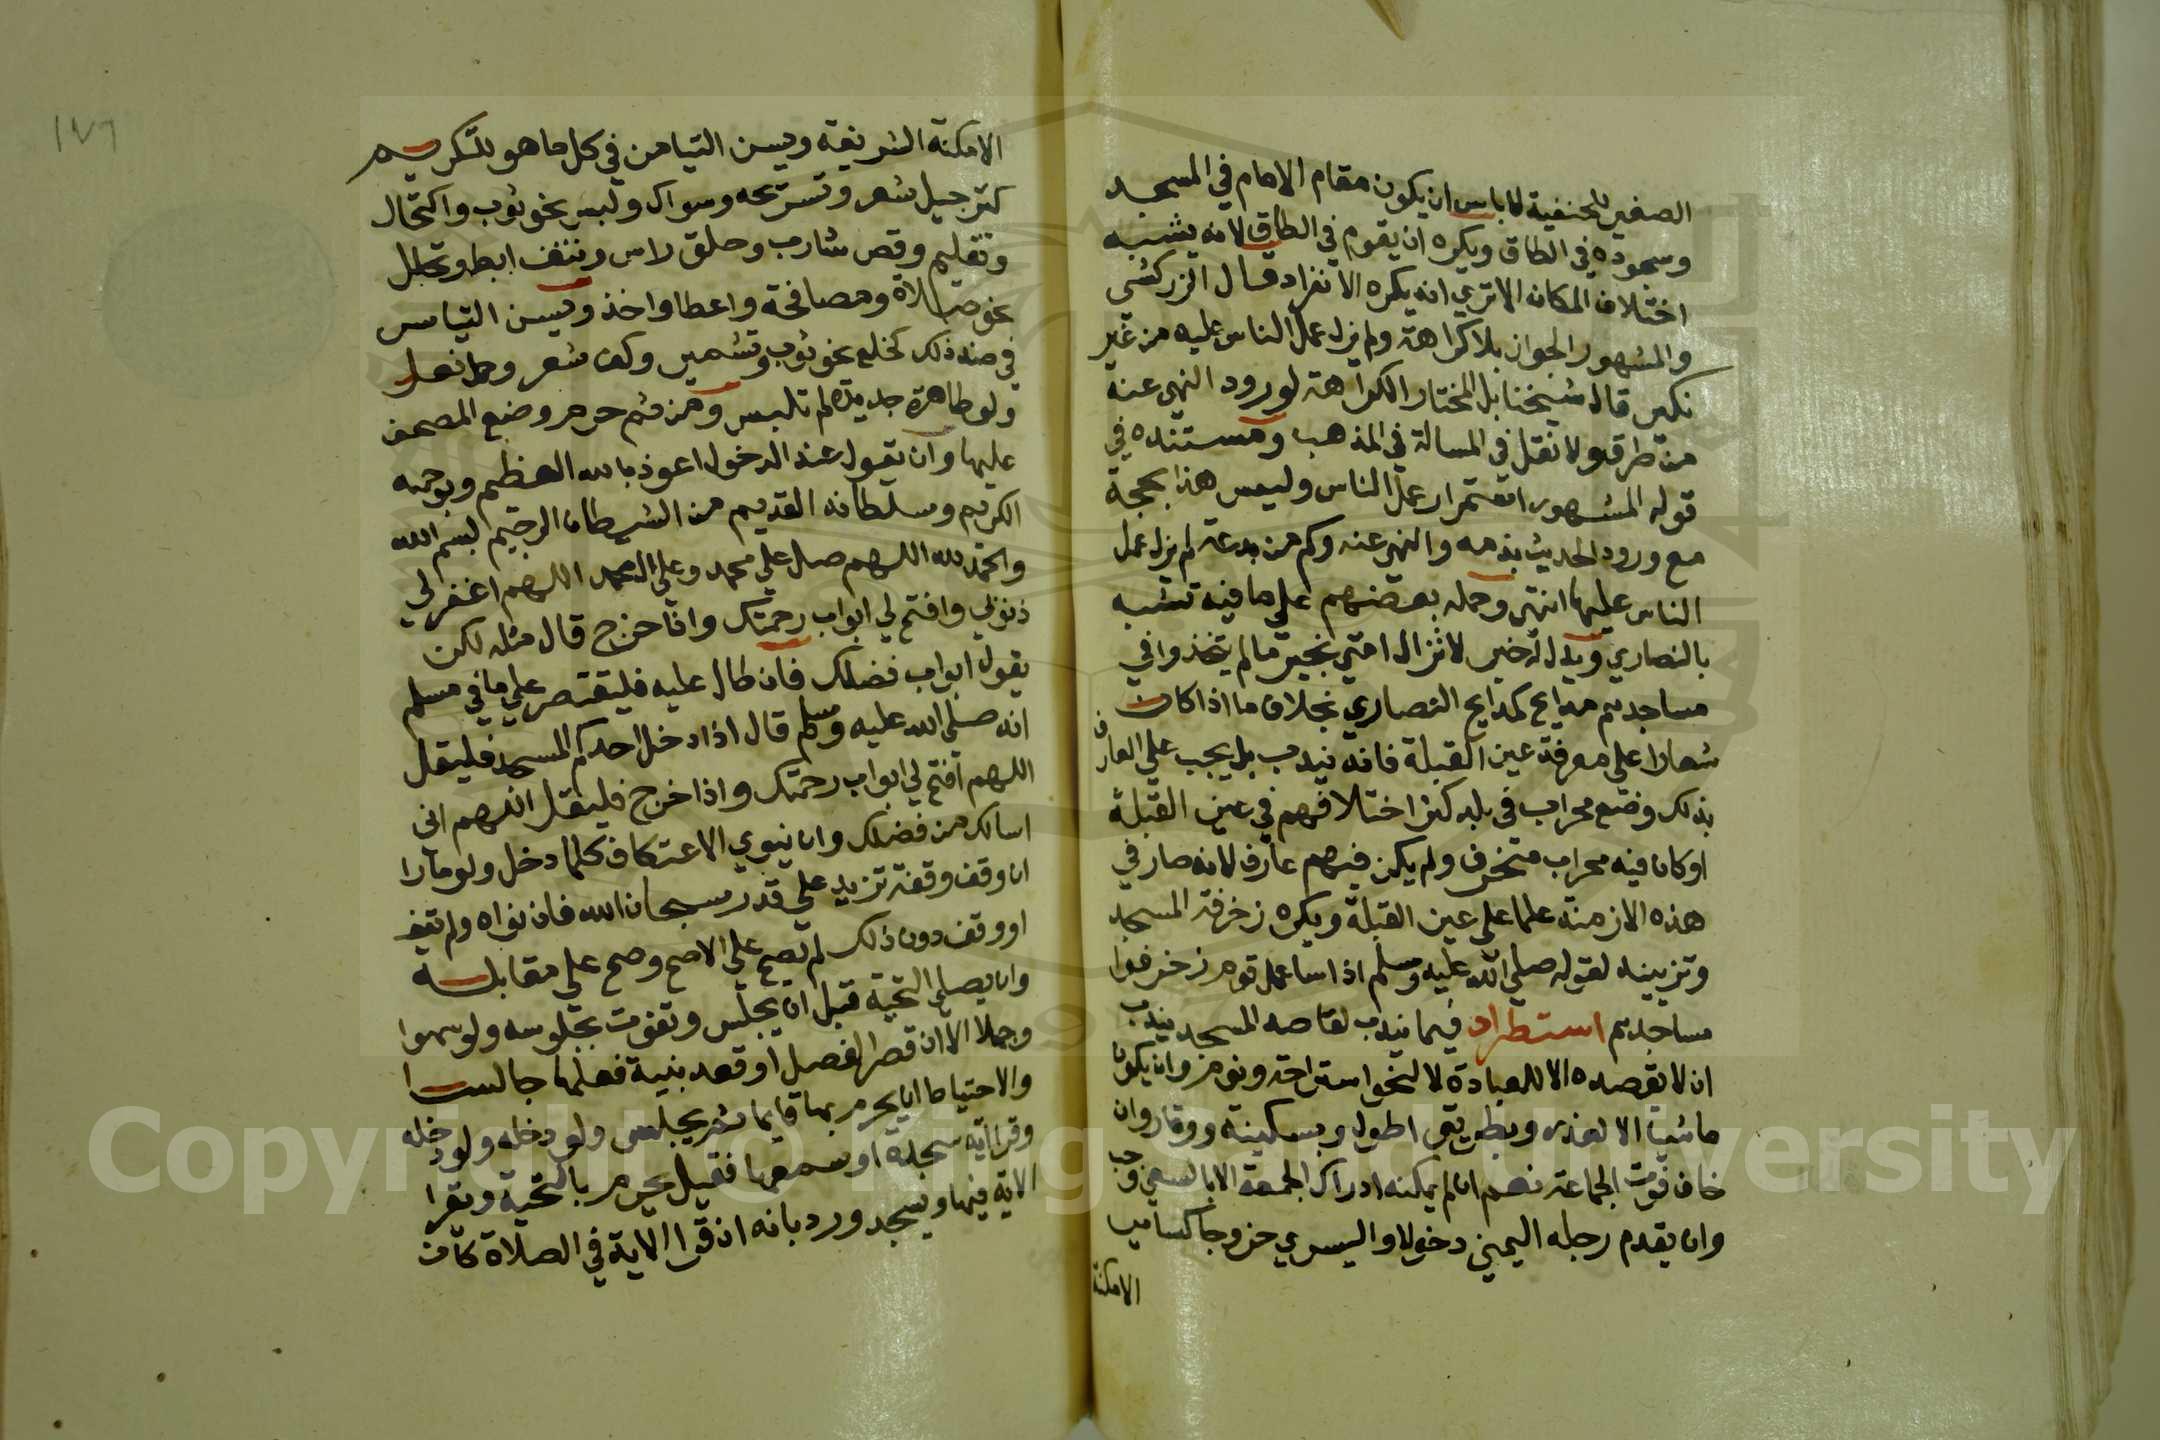 الصغير للحنفية لا باس ان يكون مقام الامام في المسجد
وسجوده في الطاق ويكره ان يقوم في الطاق لانه يشبه
اختلاف المكان الا تري انه يكره الانفراد قال الزركشي
والمشهور الجواز بلا كراهة ولم يزل عمل الناس عليه من غير
نكير قال شيخنا بل المختار الكراهة لورود النهي عنه
من طرق ولا نقل في المسالة في المذهب ومستنده في
قوله المشهور استمرار عمل الناس وليس هذا بحجة
مع ورود الحديث بذمه والنهي عنه وكم من بدعة لم يزل عمل
الناس عليها انتهي وحمله بعضهم علي ما فيه تشبه
بالنصاري ويدل له خبر لا تزال امتي بخير ما لم يتخذوا في
مساجدهم مدابح كمدابح النصاري بخلاف ما اذا كان
شعارا علي معرفة عين القبلة فانه يندب بل يجب علي العارف
بذلك وضع محراب في بلد كثر اختلافهم في عين القبلة
او كان فيه محراب منحرف ولم يكن فيهم عارف لانه صار في
هذه الازمنة علما علي عين القبلة ويكره زخرفة المسجد
وتزيينه لقوله صلي الله عليه وسلم اذا سا عمل قوم زخرفوا
مساجدهم استطراد فيما يندب لقاصد المسجد يندب
ان لا يقصده الا للعبادة لا لنحو استراحة ونوم وان يكون
ماشيا الا لعذر وبطريق اطول وبسكينة ووقار وان
خاف فوت الجماعة نعم ان لم يمكنه ادراك الجمعة الا بالسعي وجب
وان يقدم رجله اليمني دخولا واليسري خروجا كساير
الامكنة
الامكنة الشريفة ويسن التيامن في كل ما هو للتكريم
كترجيل شعر وتسريحه وسواك ولبس نحو ثوب واكتحال
وتقليم وقص شارب وحلق راس ونتف ابط وتحلل
نحو صلاة ومصافحة واعطا واخذ ويسن التياسر
في ضد ذلك كخلع نحو ثوب وتشمير وكف شعر وحط نعل
ولو طاهرة جديدة لم تلبس ومن ثم حرم وضع المصحف
عليها وان يقول عند الدخول اعوذ بالله العظيم وبوجهه
الكريم وسلطانه القديم من الشيطان الرجيم بسم الله
والحمد لله اللهم صل علي محمد وعلي ال محمد اللهم اغفر لي
ذنوبي وافتح لي ابواب رحمتك واذا خرج قال مثله لكن
يقول ابواب فضلك فان طال عليه فليقتصر علي ما في مسلم
انه صلي الله عليه وسلم قال اذا دخل احدكم المسجد فليقل
اللهم افتح لي ابواب رحمتك واذا خرج فليقل اللهم اني
اسالك من فضلك وان ينوي الاعتكاف كلما دخل ولو مارا
ان وقف وقفة تزيد علي قدر سبحان الله فان نواه ولم يقف
او وقف دون ذلك لم يصح علي الاصح وصح علي مقابله
وان يصلي التحية قبل ان يجلس وتفوت بجلوسه ولو سهوا
وجهلا الا ان قصر الفصل او قعد بنية فعلها جالسا
والاحتياط ان يحرم بها قايما ثم يجلس ولو دخله ولو دخله
وقرا اية سجدة او سمعها فقيل يحرم بالتحية ويقرا
الاية فيها ويسجد ورد بانه ان قرا الاية في الصلاة كان
١٧٦
Copyright © King Saud University